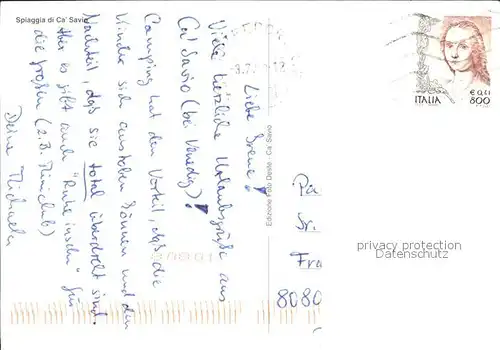 Spiaggia di Ca' Savio
Liebe Irene!
Viele herzliche Urlaubsgrüße aus
Ca' Savio (bei Venedig)!
Camping hat den Vorteil, daß die
Kinder sich austoben können und den
Nachteil, daß sie total überdreht sind.
Aber es gibt auch "Ruheinseln" für
die großen (z.B. Miniclub)
Deine Michaela
Edizione Foto Ca' Savio
ITALIA
800
€ 0,41
Fra
8080
privacy protection
Datenschutz